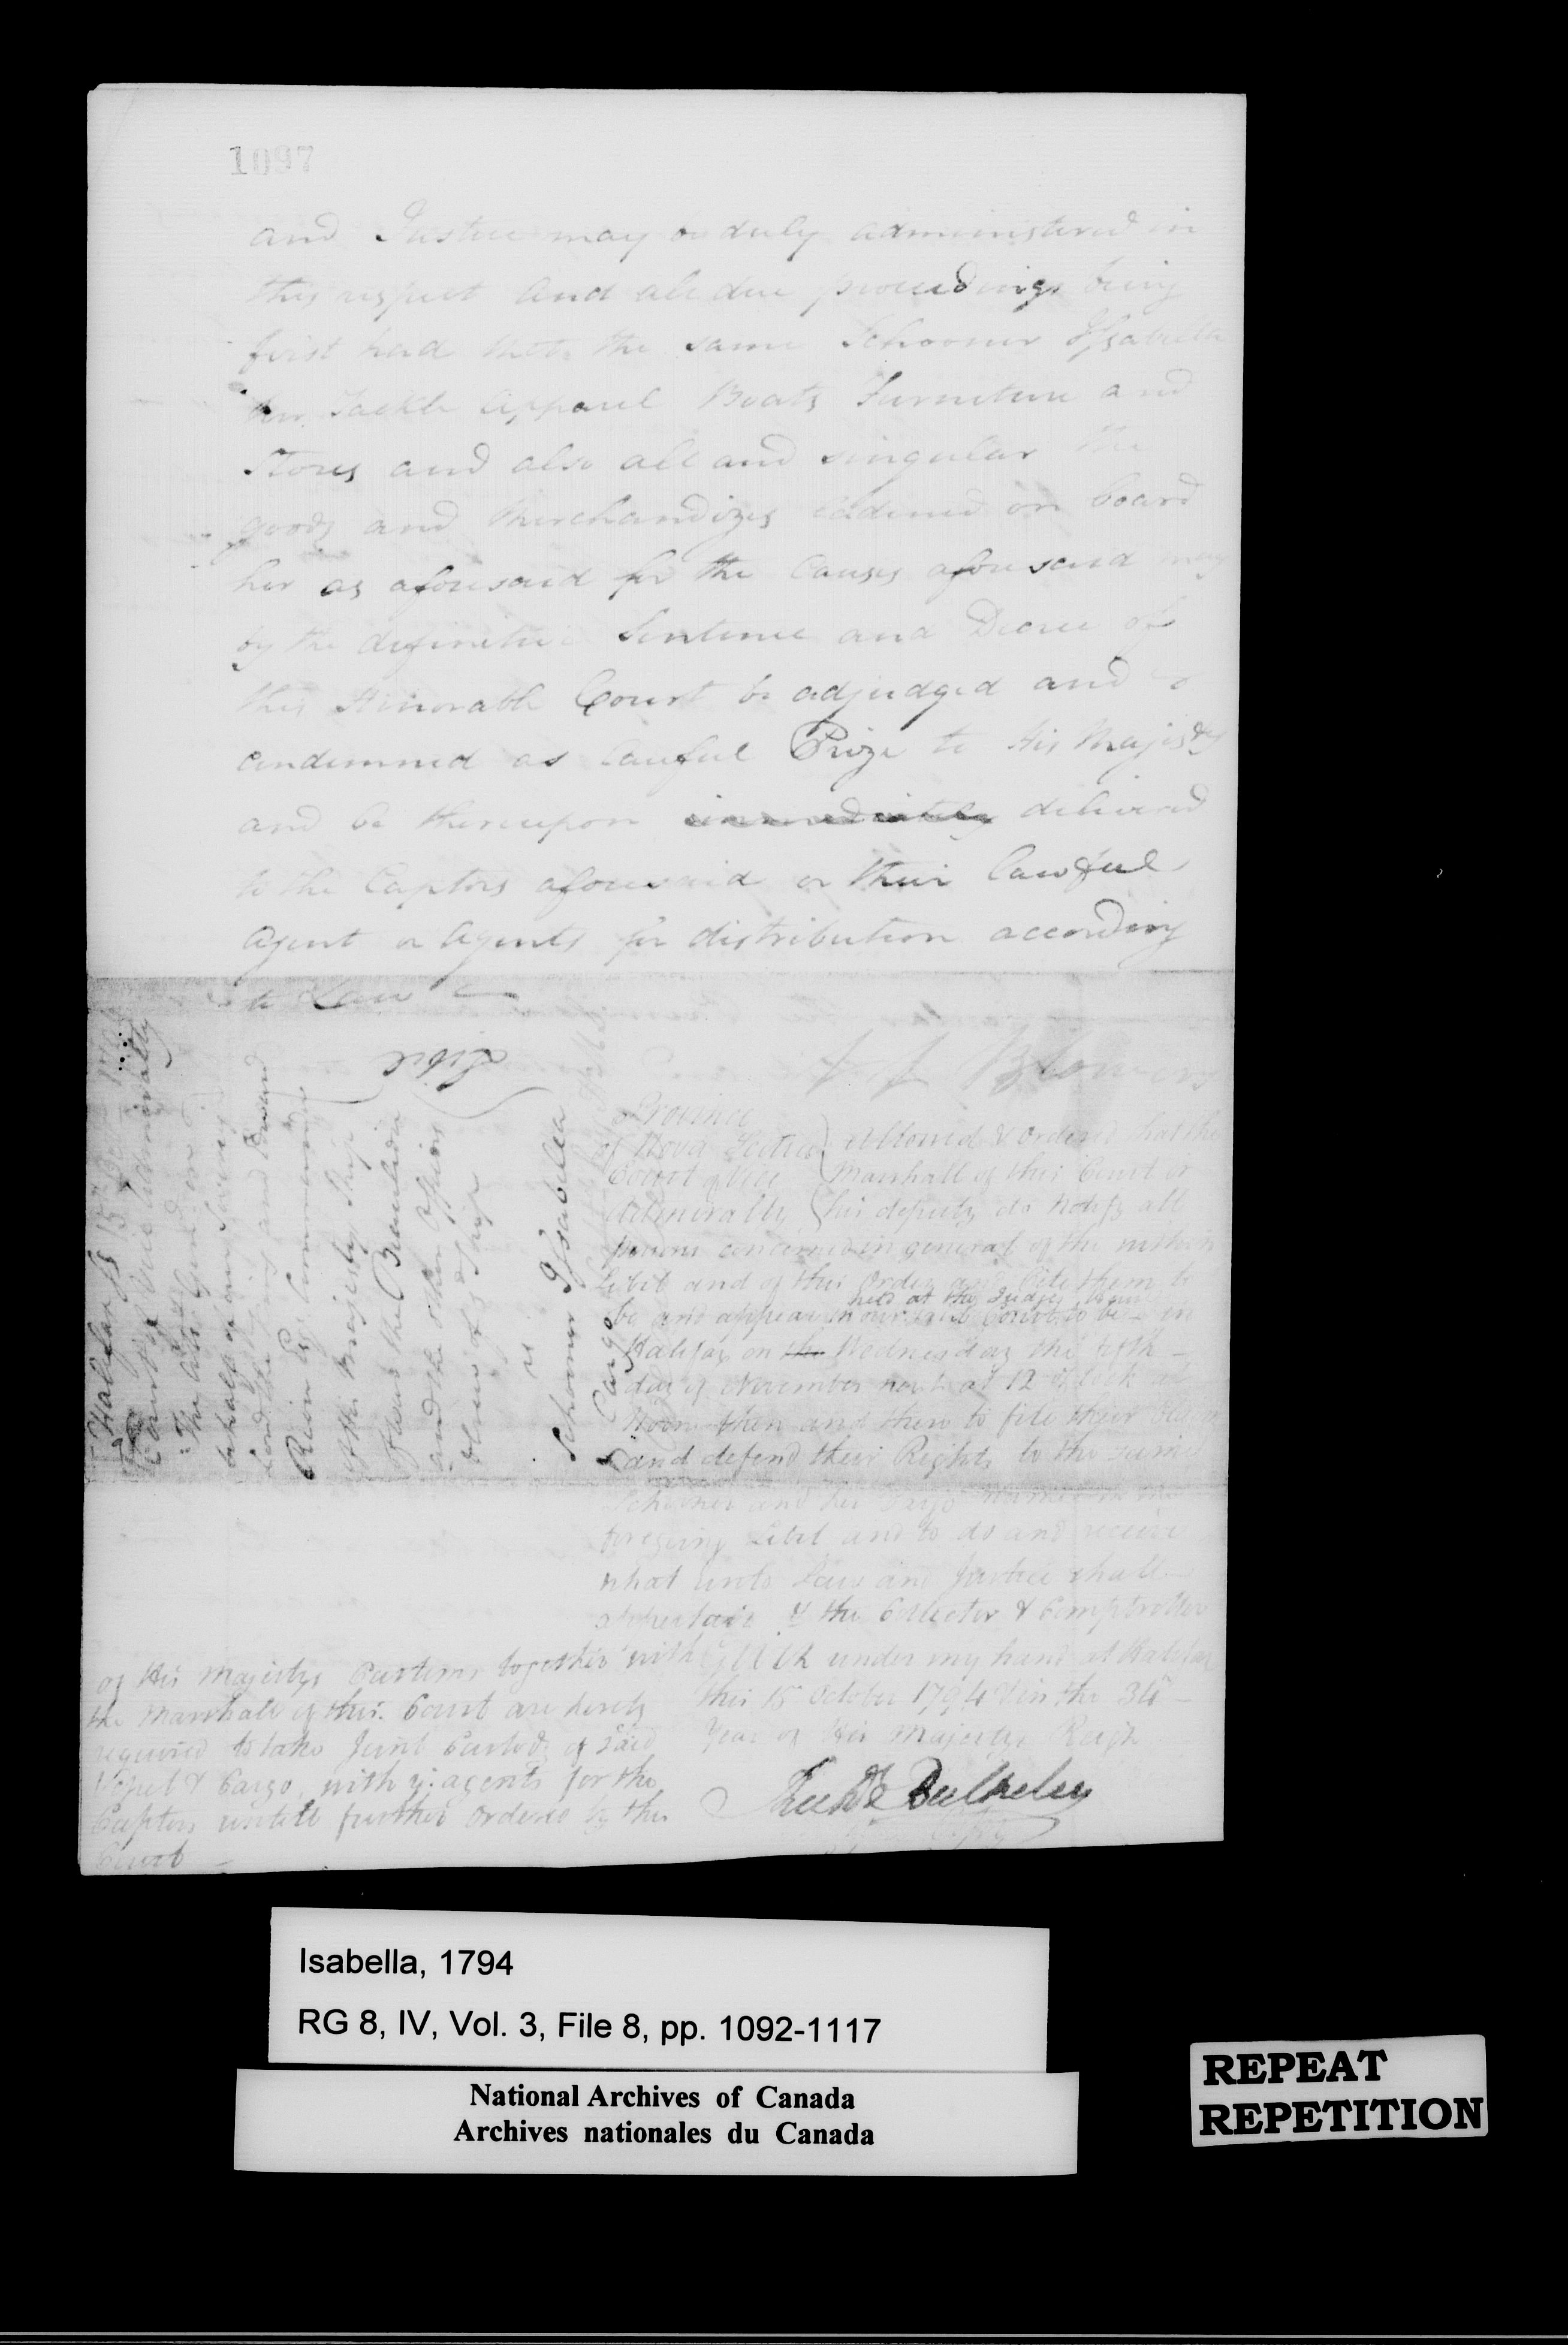 1097
and Justice may be duly administered in
this respect and all due proceedings being
first had that the same Schooner Issabella
her Tackle Apparel Boats Furniture and
Stores and also all and singular the
goods and Merchandizes ladened on board
her as aforesaid for the Causes aforesaid may
by the definitive Sentence and Decree of
this Honorable Court be adjudged and
condemned as lawful Prize to His Majesty
and be thereupon immediately delivered
to the Captors aforesaid or their lawful
Agent or Agents for distribution according
to Law
Blowers
Libel
Halifax 15 Oct 1794
Court of Vice Admiralty
The Atty General on
behalf of our Sovereign
Lord the King and Edward
Esqr Commanding
of His Majestys Ship
of War the
and the other Officers
& Crew of sd Ship
vs
Schooner Issabella
& Cargo
Province
of Nova Scotia
Court of Vice
Admiralty
Allowed & Ordered that the
Marshall of this Court or
his deputy do notify all
Persons concerned in general of the within
Libel and of this Order and Cite them to
be and appear in our said Court to be held at the Judges house in
Halifax on the Wednesday the fifth
day of November next at 12 oClock at
Noon then and there to file their Claim
and defend their Rights to the same
Schooner and her Cargo named in the
foregoing Libel and to do and receive
what unto Law and Justice shall
appertain & the Collector & Comptroller
of His Majestys Customs together with
the Marshall of this Court are hereby
required to take Joint Custody of said
Vessel & Cargo, with ye agents for the
Captors untill further Ordered by this
Court
Given under my hand at Halifax
this 15 October 1794 & in the 34th
Year of His Majestys Reign
Bulkeley
Isabella, 1794
RG 8, IV, Vol. 3, File 8, pp. 1092-1117
National Archives of Canada
Archives nationales du Canada
REPEAT
REPETITION